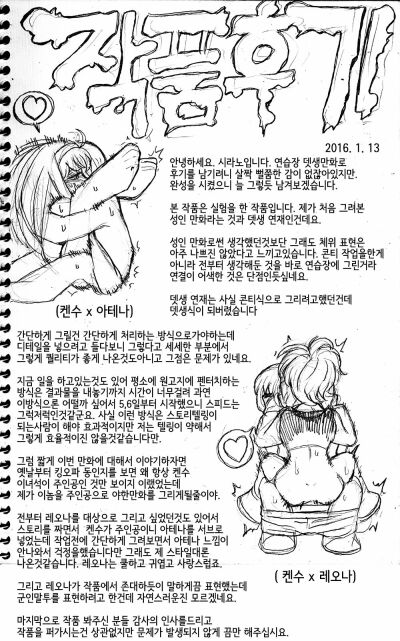 작품후기
2016. 1. 13
안녕하세요. 시라노입니다. 연습장 뎃생만화로
후기를 남기려니 살짝 뻘쭘한 감이 없잖아있지만.
완성을 시켰으니 늘 그렇듯 남겨보겠습니다.
본 작품은 실험을 한 작품입니다. 제가 처음 그려본
성인 만화라는 것과 뎃생 연재인건데요.
성인 만화로썬 생각했던것보단 그래도 체위 표현은
아주 나쁘진 않았다고 느끼고있습니다. 콘티 작업을한게
아니라 전부터 생각해둔 것을 바로 연습장에 그린거라
연결이 어색한 것은 단점인듯싶네요.
뎃생 연재는 사실 콘티식으로 그리려고했던건데
뎃생식이 되버렸습니다
(켄수 x 아테나)
간단하게 그릴건 간단하게 처리하는 방식으로가야하는데
디테일을 넣으려고 들다보니 그렇다고 세세한 부분에서
그렇게 퀄리티가 좋게 나온것도아니고 그점은 문제가 있네요.
지금 일을 하고있는것도 있어 평소에 원고지에 펜터치하는
방식은 결과물을 내놓기까지 시간이 너무걸려 과연
이방식으론 어떨까 싶어서 5,6일부터 시작했으니 스피드는
그럭저럭인것같군요. 사실 이런 방식은 스토리텔링이
되는사람이 해야 효과적이지만 저는 텔링이 약해서
그렇게 효율적이진 않을것같습니다만.
그럼 짧게 이번 만화에 대해서 이야기하자면
옛날부터 킹오파 동인지를 보면 왜 항상 켄수
이녀석이 주인공인 것만 보이지 이랬었는데
제가 이놈을 주인공으로 야한만화를 그리게될줄이야.
전부터 레오나를 대상으로 그리고 싶었던것도 있어서
스토리를 짜면서 켄수가 주인공이니 아테나를 서브로
넣었는데 작업전에 간단하게 그려보면서 아테나 느낌이
안나와서 걱정을했습니다만 그래도 제 스타일대론
나온것같습니다. 레오나는 쿨하고 귀엽고 사랑스럽죠.
(켄수 x 레오나)
그리고 레오나가 작품에서 존대하듯이 말하게끔 표현했는데
군인말투를 표현하려고 한건데 자연스러운진 모르겠네요.
마지막으로 작품 봐주신 분들 감사의 인사를드리고
작품을 퍼가시는건 상관없지만 문제가 발생되지 않게 끔만 해주십시요.